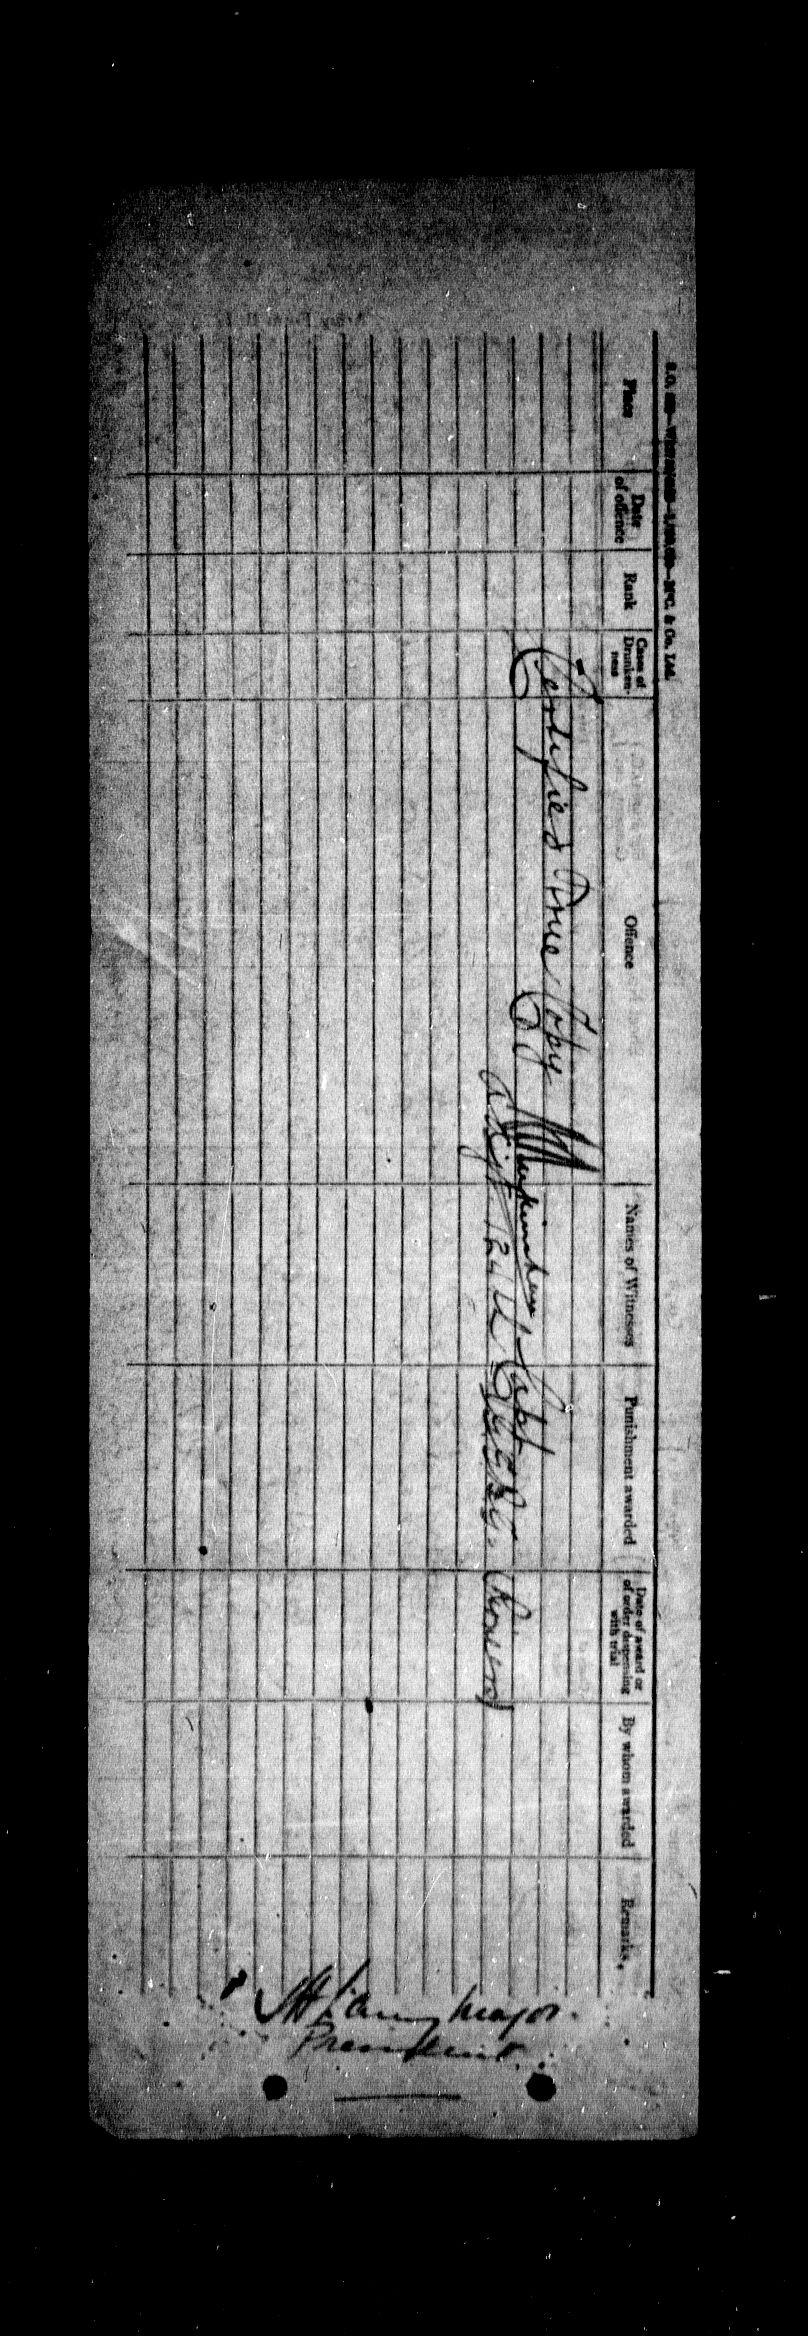 & Co. Ltd.
Place
Date of offence
Rank
Cases of Drunkenness
Offence
Names of Witnesses
Punishment awarded
Date of award or of order dispensing with trial
By whom awarded
Remarks.
Certified True Copy
Capt
Adjt 124th
Major.
President.